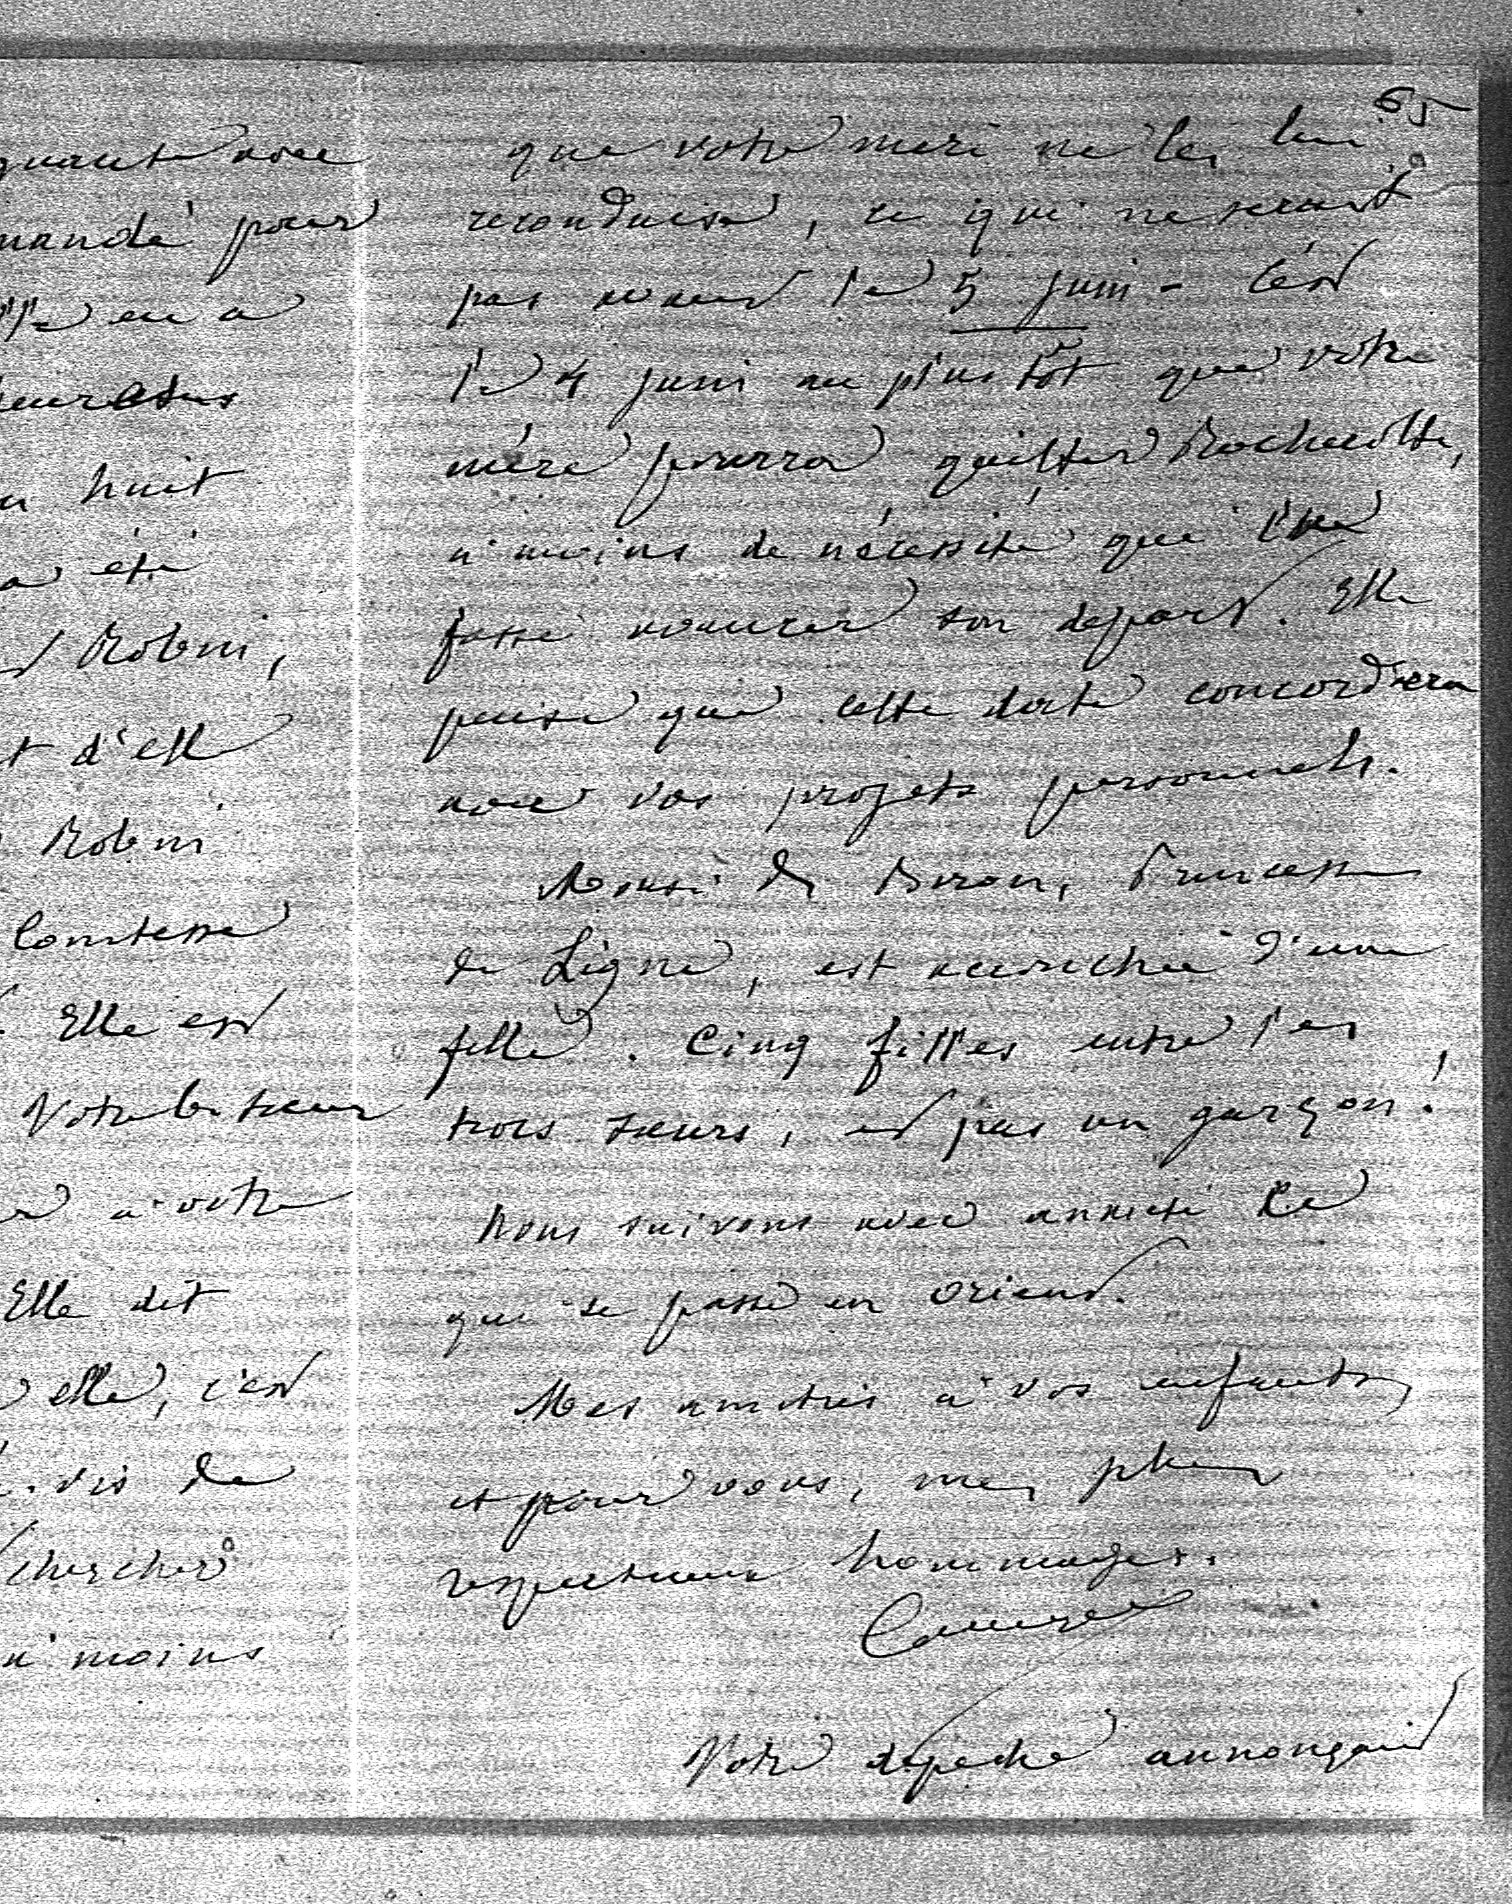 65
quante avec
mandé pour
elle en a
huit
a été
Robin,
t d'elle
Robin
Comtesse
Elle est
Votre b. soeur
à votre
Elle dit
elle, c'est
vis de
chercher
à moins
que votre mère ne les lui
reconduise, ce qui ne serait
pas avant le 5 juin - C'est
le 4 juin au plus tôt que votre
mère pourra quitter Rochecotte,
à moins de nécessité qui
fasse avancer son départ. Elle
pense que cette date concordera
avec vos projets personnels.
de Biron, Princesse
de Ligne, est accouchée d'une
fille. Cinq filles entre les
trois soeurs, et pas un garçon!
Nous suivons avec anxiété ce
qui se passe en Orient.
Mes amitiés à vos enfants,
et pour vous, mes plus
respectueux hommages.
Votre dépêche annonçant